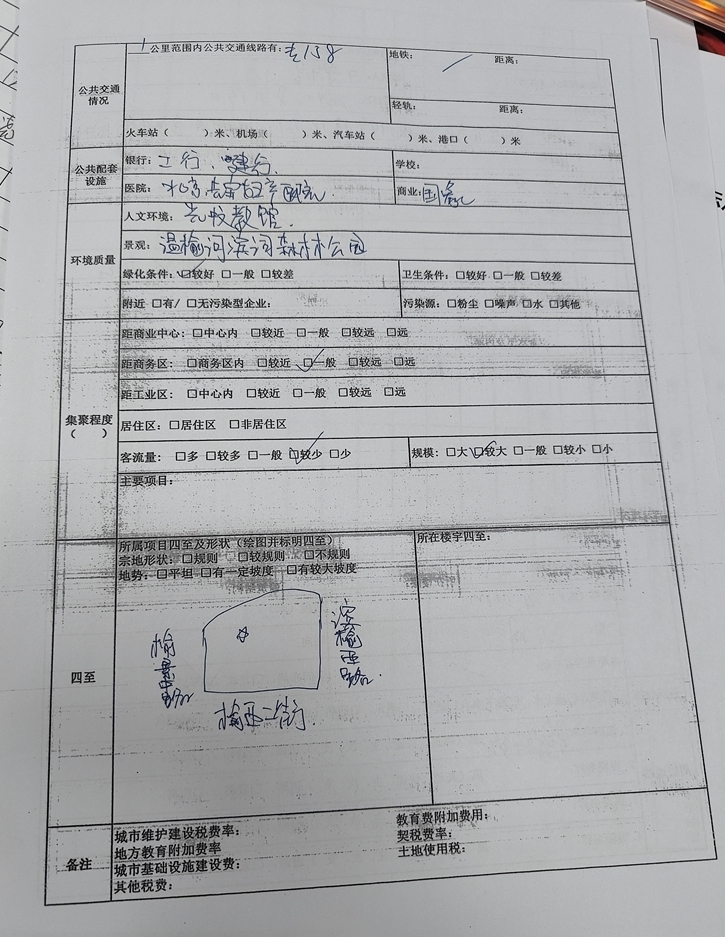 1 公里范围内公共交通线路有：专158
地铁： / 距离：
公共交通情况
轻轨： 距离：
火车站（ ）米、机场（ ）米、汽车站（ ）米、港口（ ）米
公共配套设施
银行：工行、建行.
学校：
医院：
商业：国泰
环境质量
人文环境：
景观：温榆河滨河森林公园
绿化条件：☑较好 □一般 □较差
卫生条件：□较好 □一般 □较差
附近 □有/ □无污染型企业：
污染源：□粉尘 □噪声 □水 □其他
集聚程度
（ ）
距商业中心：□中心内 □较近 □一般 □较远 □远
距商务区：□商务区内 □较近 ☑一般 □较远 □远
距工业区：□中心内 □较近 □一般 □较远 □远
居住区：□居住区 □非居住区
客流量：□多 □较多 □一般 ☑较少 □少
规模：□大 ☑较大 □一般 □较小 □小
主要项目：
四至
所属项目四至及形状（绘图并标明四至）
宗地形状：□规则 □较规则 □不规则
地势：□平坦 □有一定坡度 □有较大坡度
所在楼宇四至：
榆景东路
滨榆西路.
榆西一街.
备注
城市维护建设税费率：
教育费附加费用：
地方教育附加费率
契税费率：
城市基础设施建设费：
土地使用税：
其他税费：